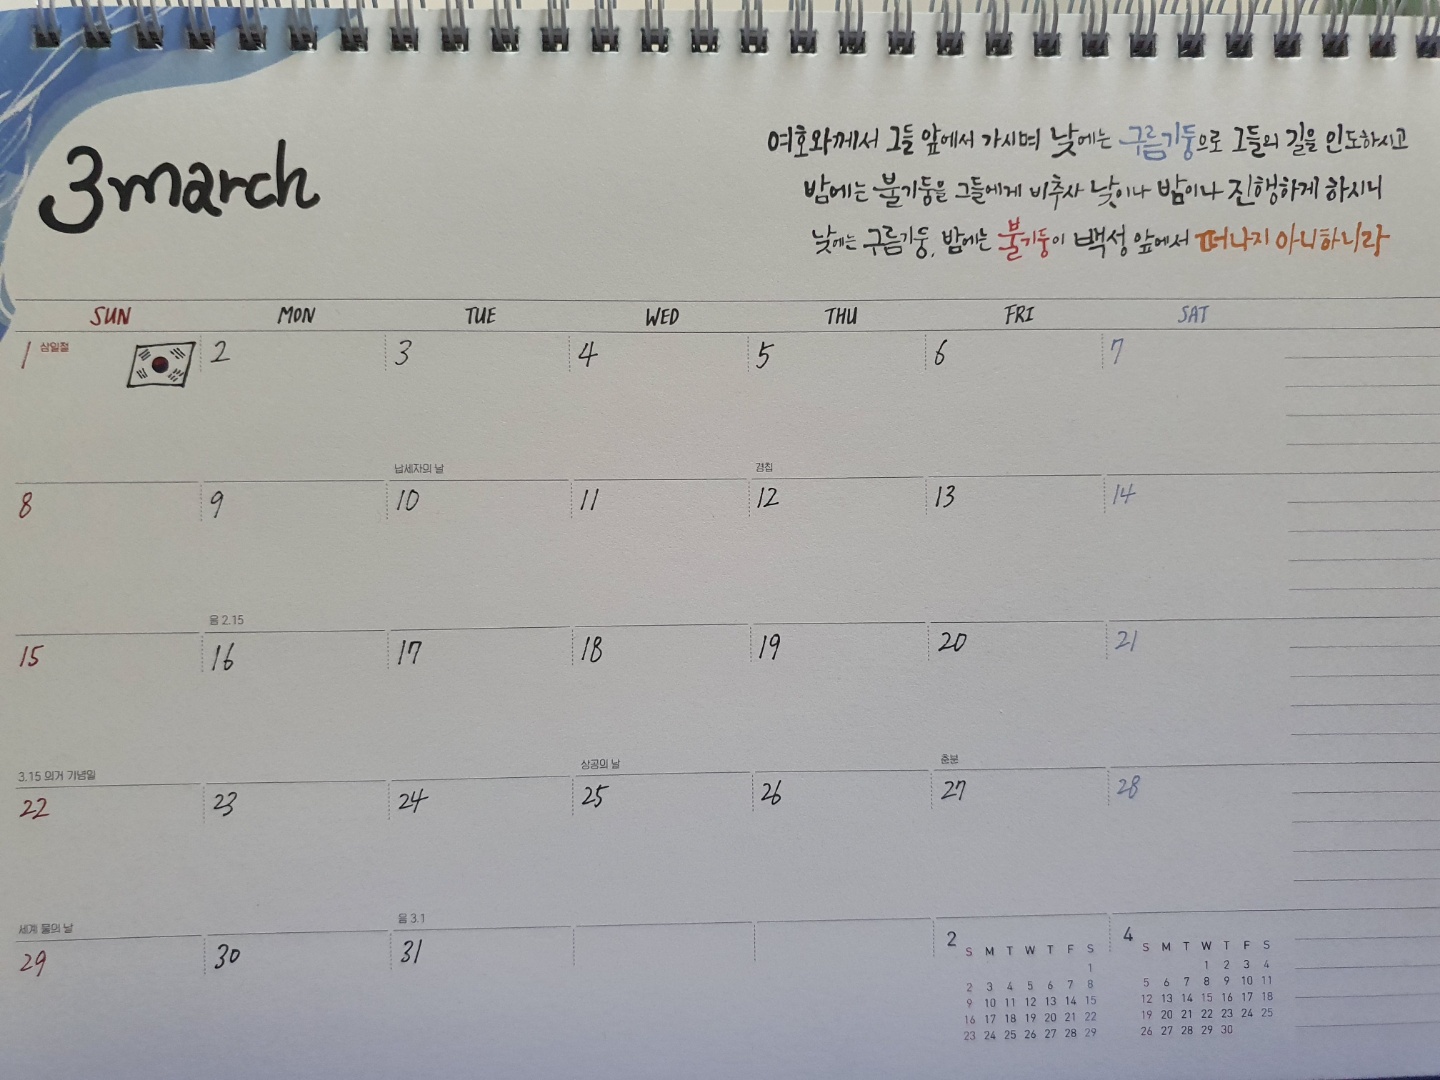 3 march
여호와께서 그들 앞에서 가시며 낮에는 구름기둥으로 그들의 길을 인도하시고
밤에는 불기둥을 그들에게 비추사 낮이나 밤이나 진행하게 하시니
낮에는 구름기둥, 밤에는 불기둥이 백성 앞에서 떠나지 아니하니라
SUN MON TUE WED THU FRI SAT
1 삼일절 2 3 4 5 6 7
납세자의 날 경칩
8 9 10 11 12 13 14
음 2.15
15 16 17 18 19 20 21
3.15 의거 기념일 상공의 날 춘분
22 23 24 25 26 27 28
세계 물의 날 음 3.1
29 30 31
2
S M T W T F S
1
2 3 4 5 6 7 8
9 10 11 12 13 14 15
16 17 18 19 20 21 22
23 24 25 26 27 28 29
4
S M T W T F S
1 2 3 4
5 6 7 8 9 10 11
12 13 14 15 16 17 18
19 20 21 22 23 24 25
26 27 28 29 30